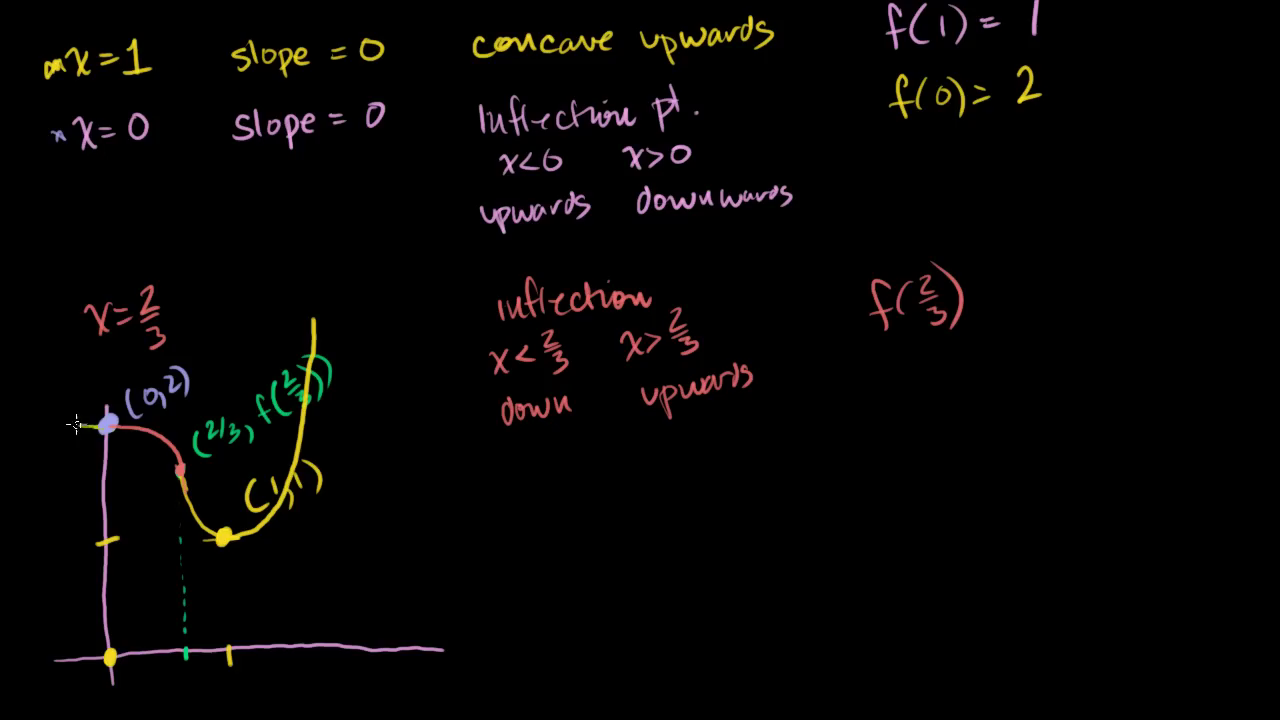 x=1 slope = 0 concave upwards f(1) = 1
x=0 slope = 0 Inflection pt. f(0) = 2
x<0 x>0
upwards downwards
x=2/3 Inflection f(2/3)
x<2/3 x>2/3
down upwards
(0,2)
(2/3, f(2/3))
(1,1)